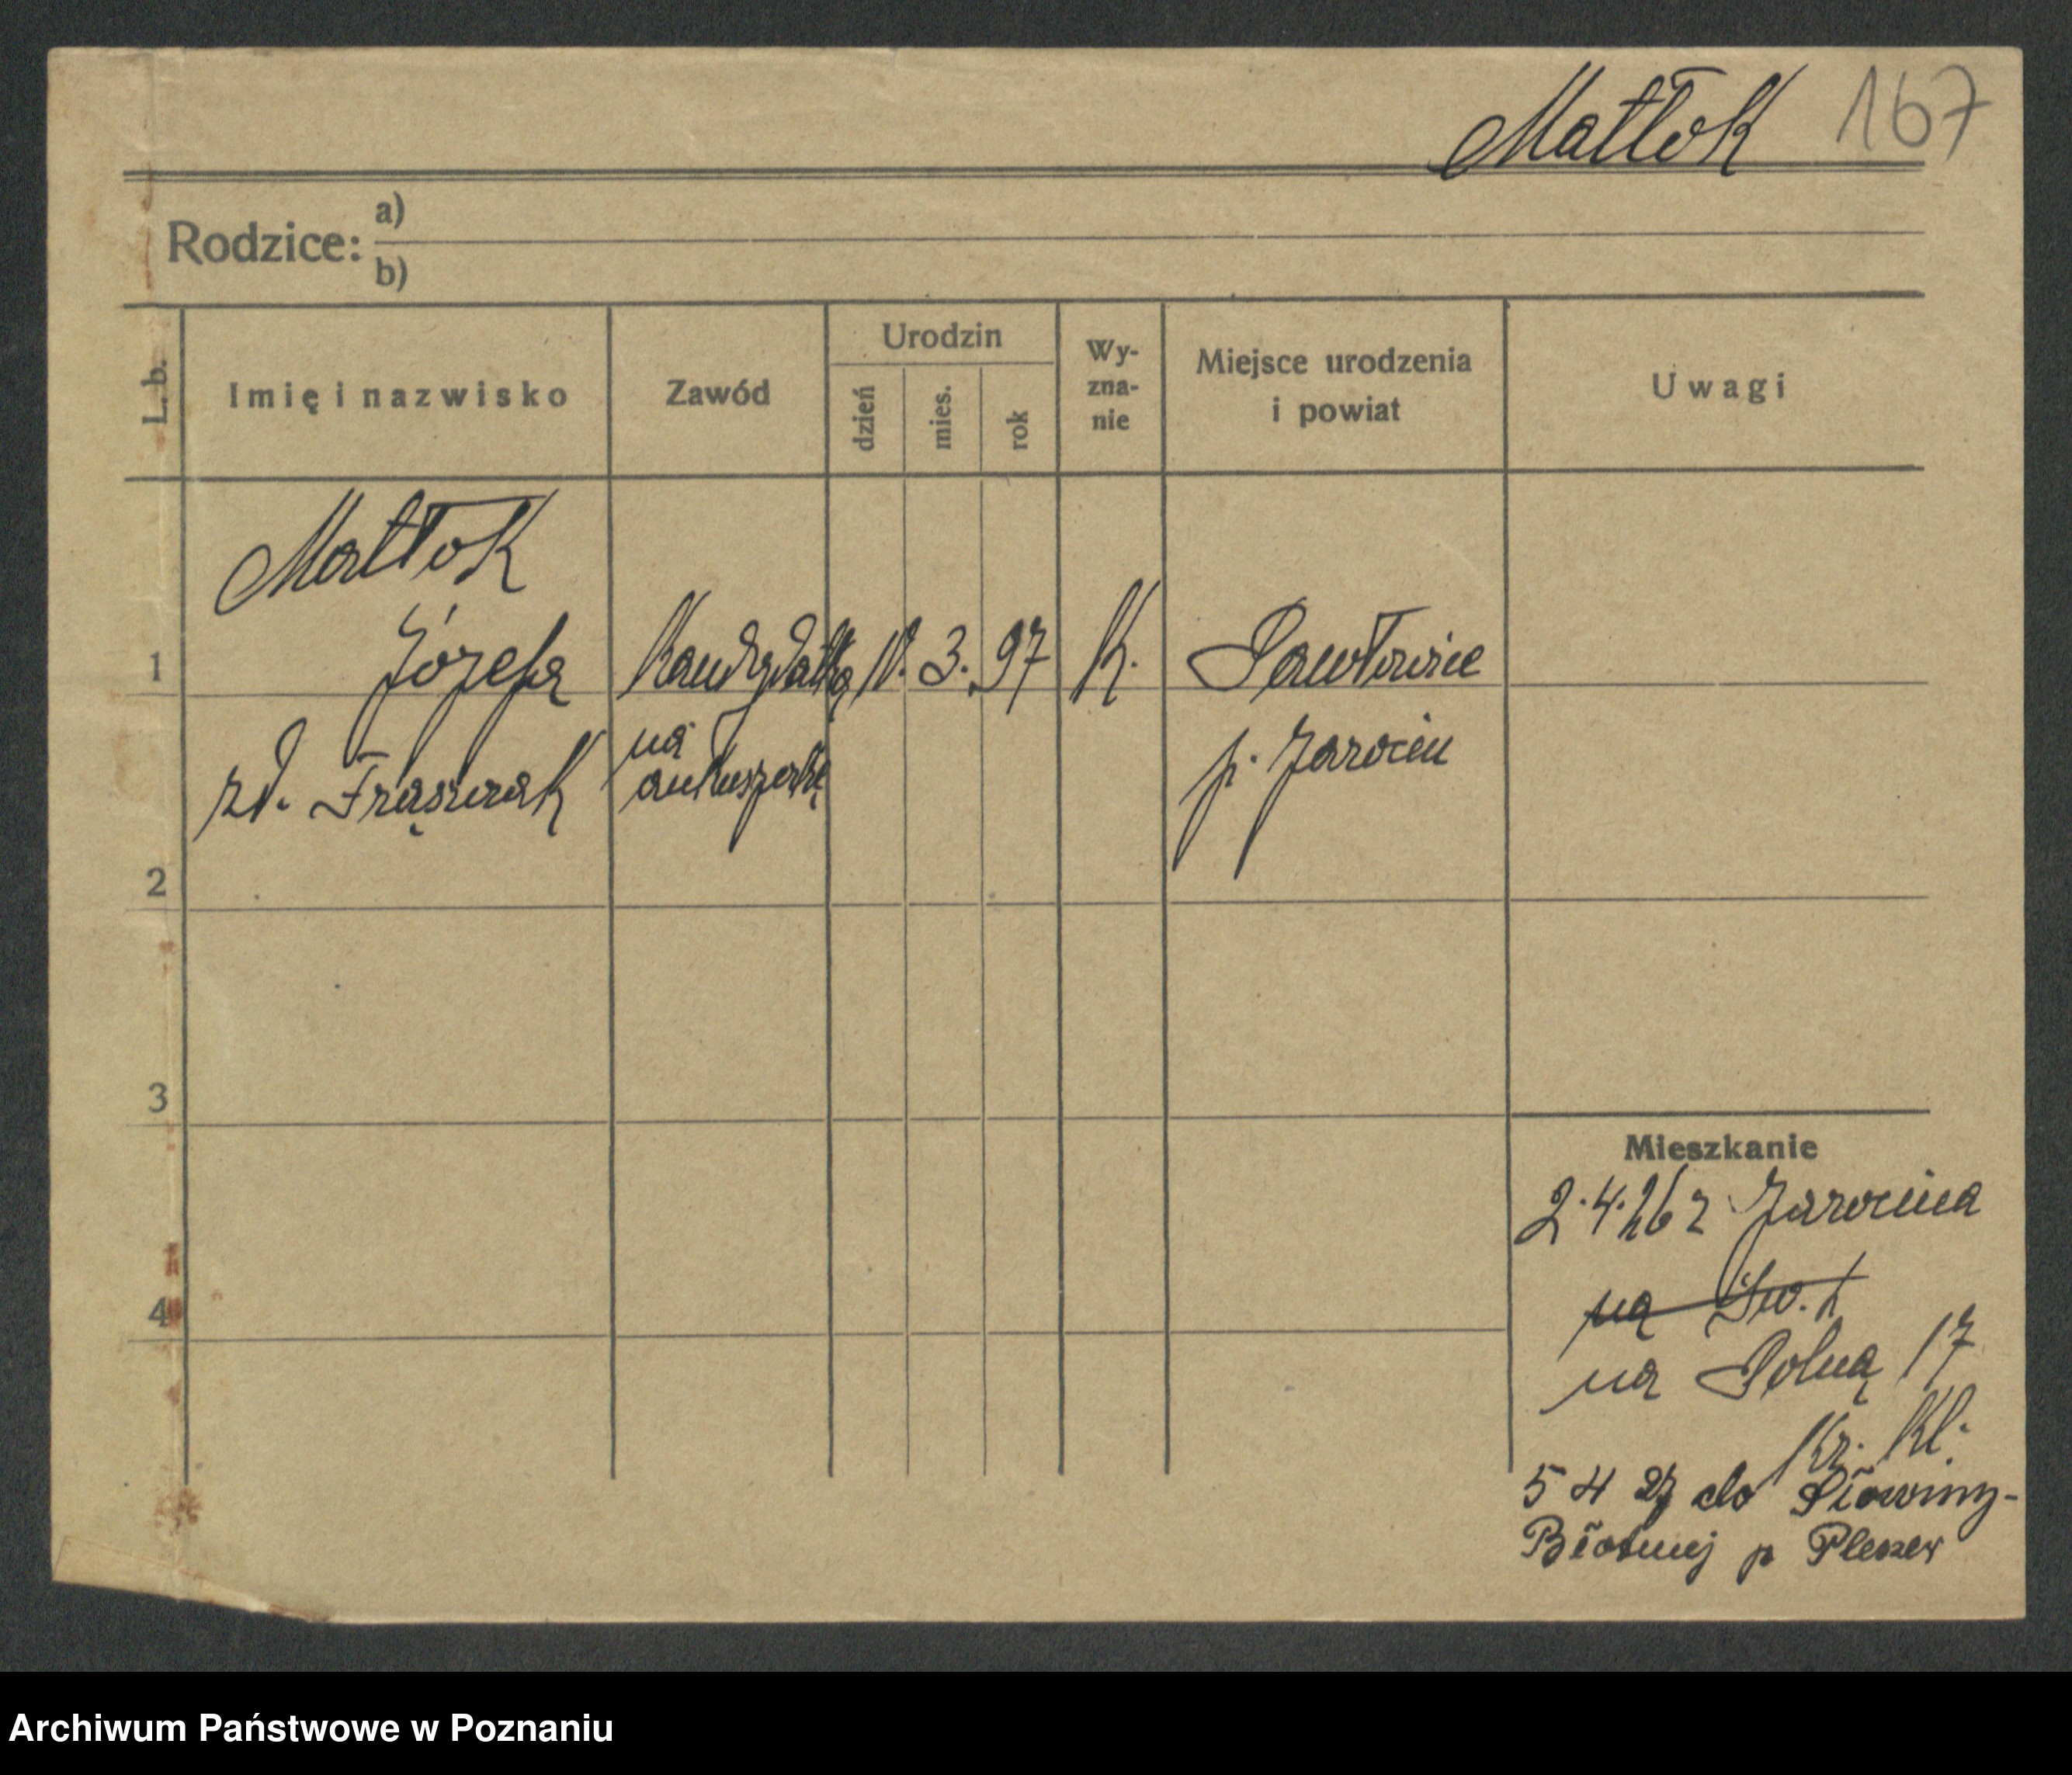 Matłok 167
Rodzice: a)
b)
L. b.
Imię i nazwisko
Zawód
Urodzin
dzień
mies.
rok
Wy-
zna-
nie
Miejsce urodzenia
i powiat
Uwagi
Matłok
1 Józefa Kandydatką 3. 97 K. Pawłowice
zd. na
akuszerkę
p. Jarocin
2
3
4
Mieszkanie
2.4.26 z Jarocina
na Św.
na Polną 17
Kr. Kl.
5 4 27 do Słowiny-
Błotnej p Pleszew
Archiwum Państwowe w Poznaniu